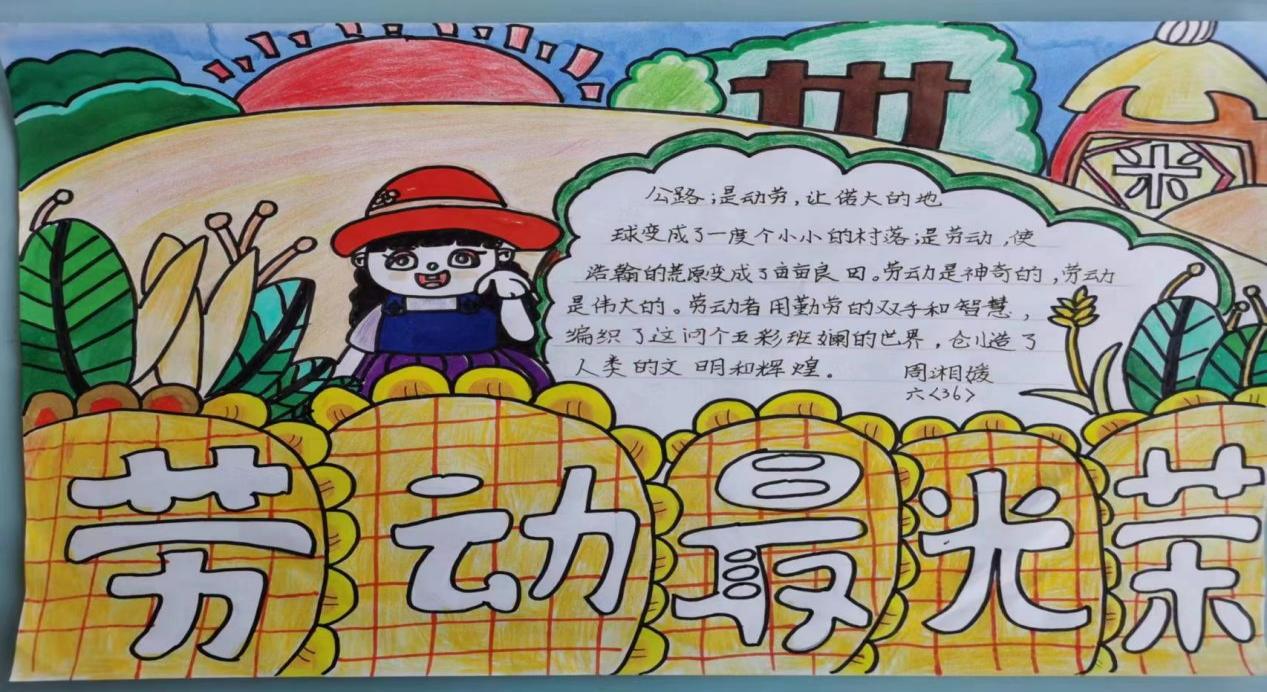 米
公路;是动劳,让偌大的地
球变成了一度个小小的村落;是劳动,使
浩瀚的荒原变成了亩亩良田。劳动是神奇的,劳动
是伟大的。劳动者用勤劳的双手和智慧,
编织了这问个五彩班斓的世界,创造了
人类的文明和辉煌。
周湘媛
六<36>
劳动最光荣